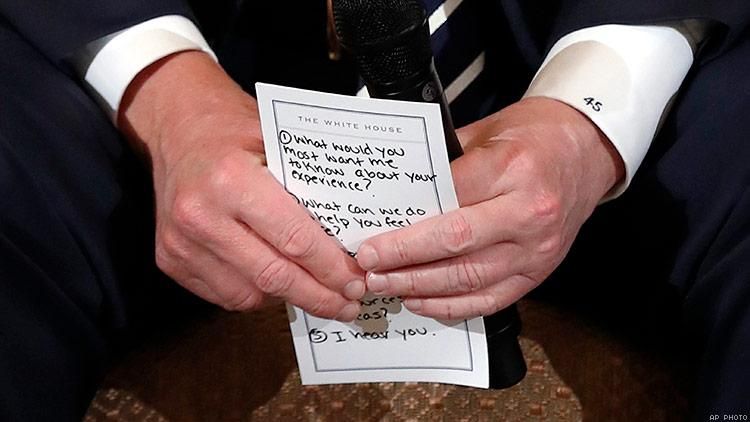 45
THE WHITE HOUSE
① What would you
most want me
to know about your
experience?
What can we do
help you feel
⑤ I hear you.
AP PHOTO